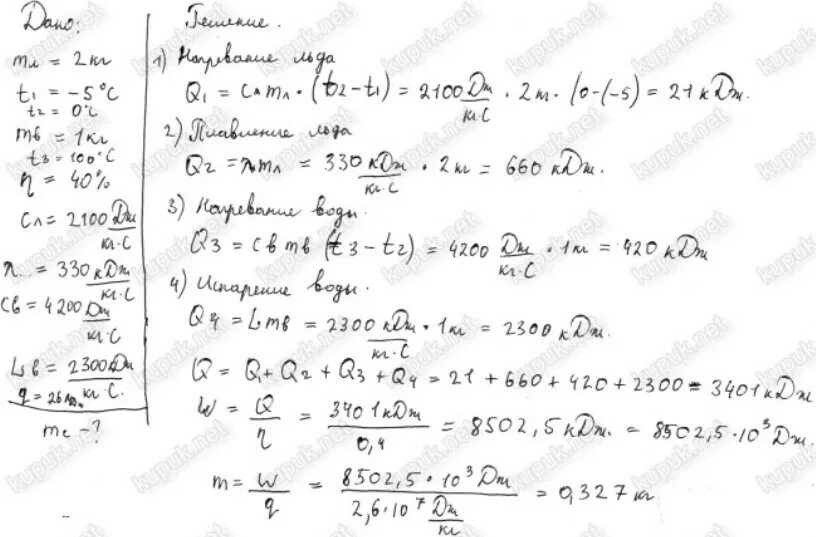 Дано:
mл = 2 кг
t1 = -5°C
t2 = 0°C
mв = 1 кг
t3 = 100°C
η = 40%
Cл = 2100 Дж/кг·С
λ = 330 кДж/кг·С
Cв = 4200 Дж/кг·С
Lв = 2300 кДж/кг·С
mc - ?
Решение.
1) Нагревание льда
Q1 = Cл mл · (t2 - t1) = 2100 Дж/кг·С · 2 кг · (0-(-5) = 21 кДж.
2) Плавление льда
Q2 = λmл = 330 кДж/кг·С · 2 кг = 660 кДж.
3) Нагревание воды.
Q3 = Cв mв (t3 - t2) = 4200 Дж/кг·С · 1 кг = 420 кДж
4) Испарение воды.
Q4 = Lmв = 2300 кДж/кг·С · 1 кг = 2300 кДж.
Q = Q1 + Q2 + Q3 + Q4 = 21 + 660 + 420 + 2300 = 3401 кДж
W = Q/η = 3401 кДж/0,4 = 8502,5 кДж. = 8502,5·10³ Дж.
m = W/q = 8502,5·10³ Дж/2,6·10⁷ Дж/кг = 0,327 кг
kupuk.net